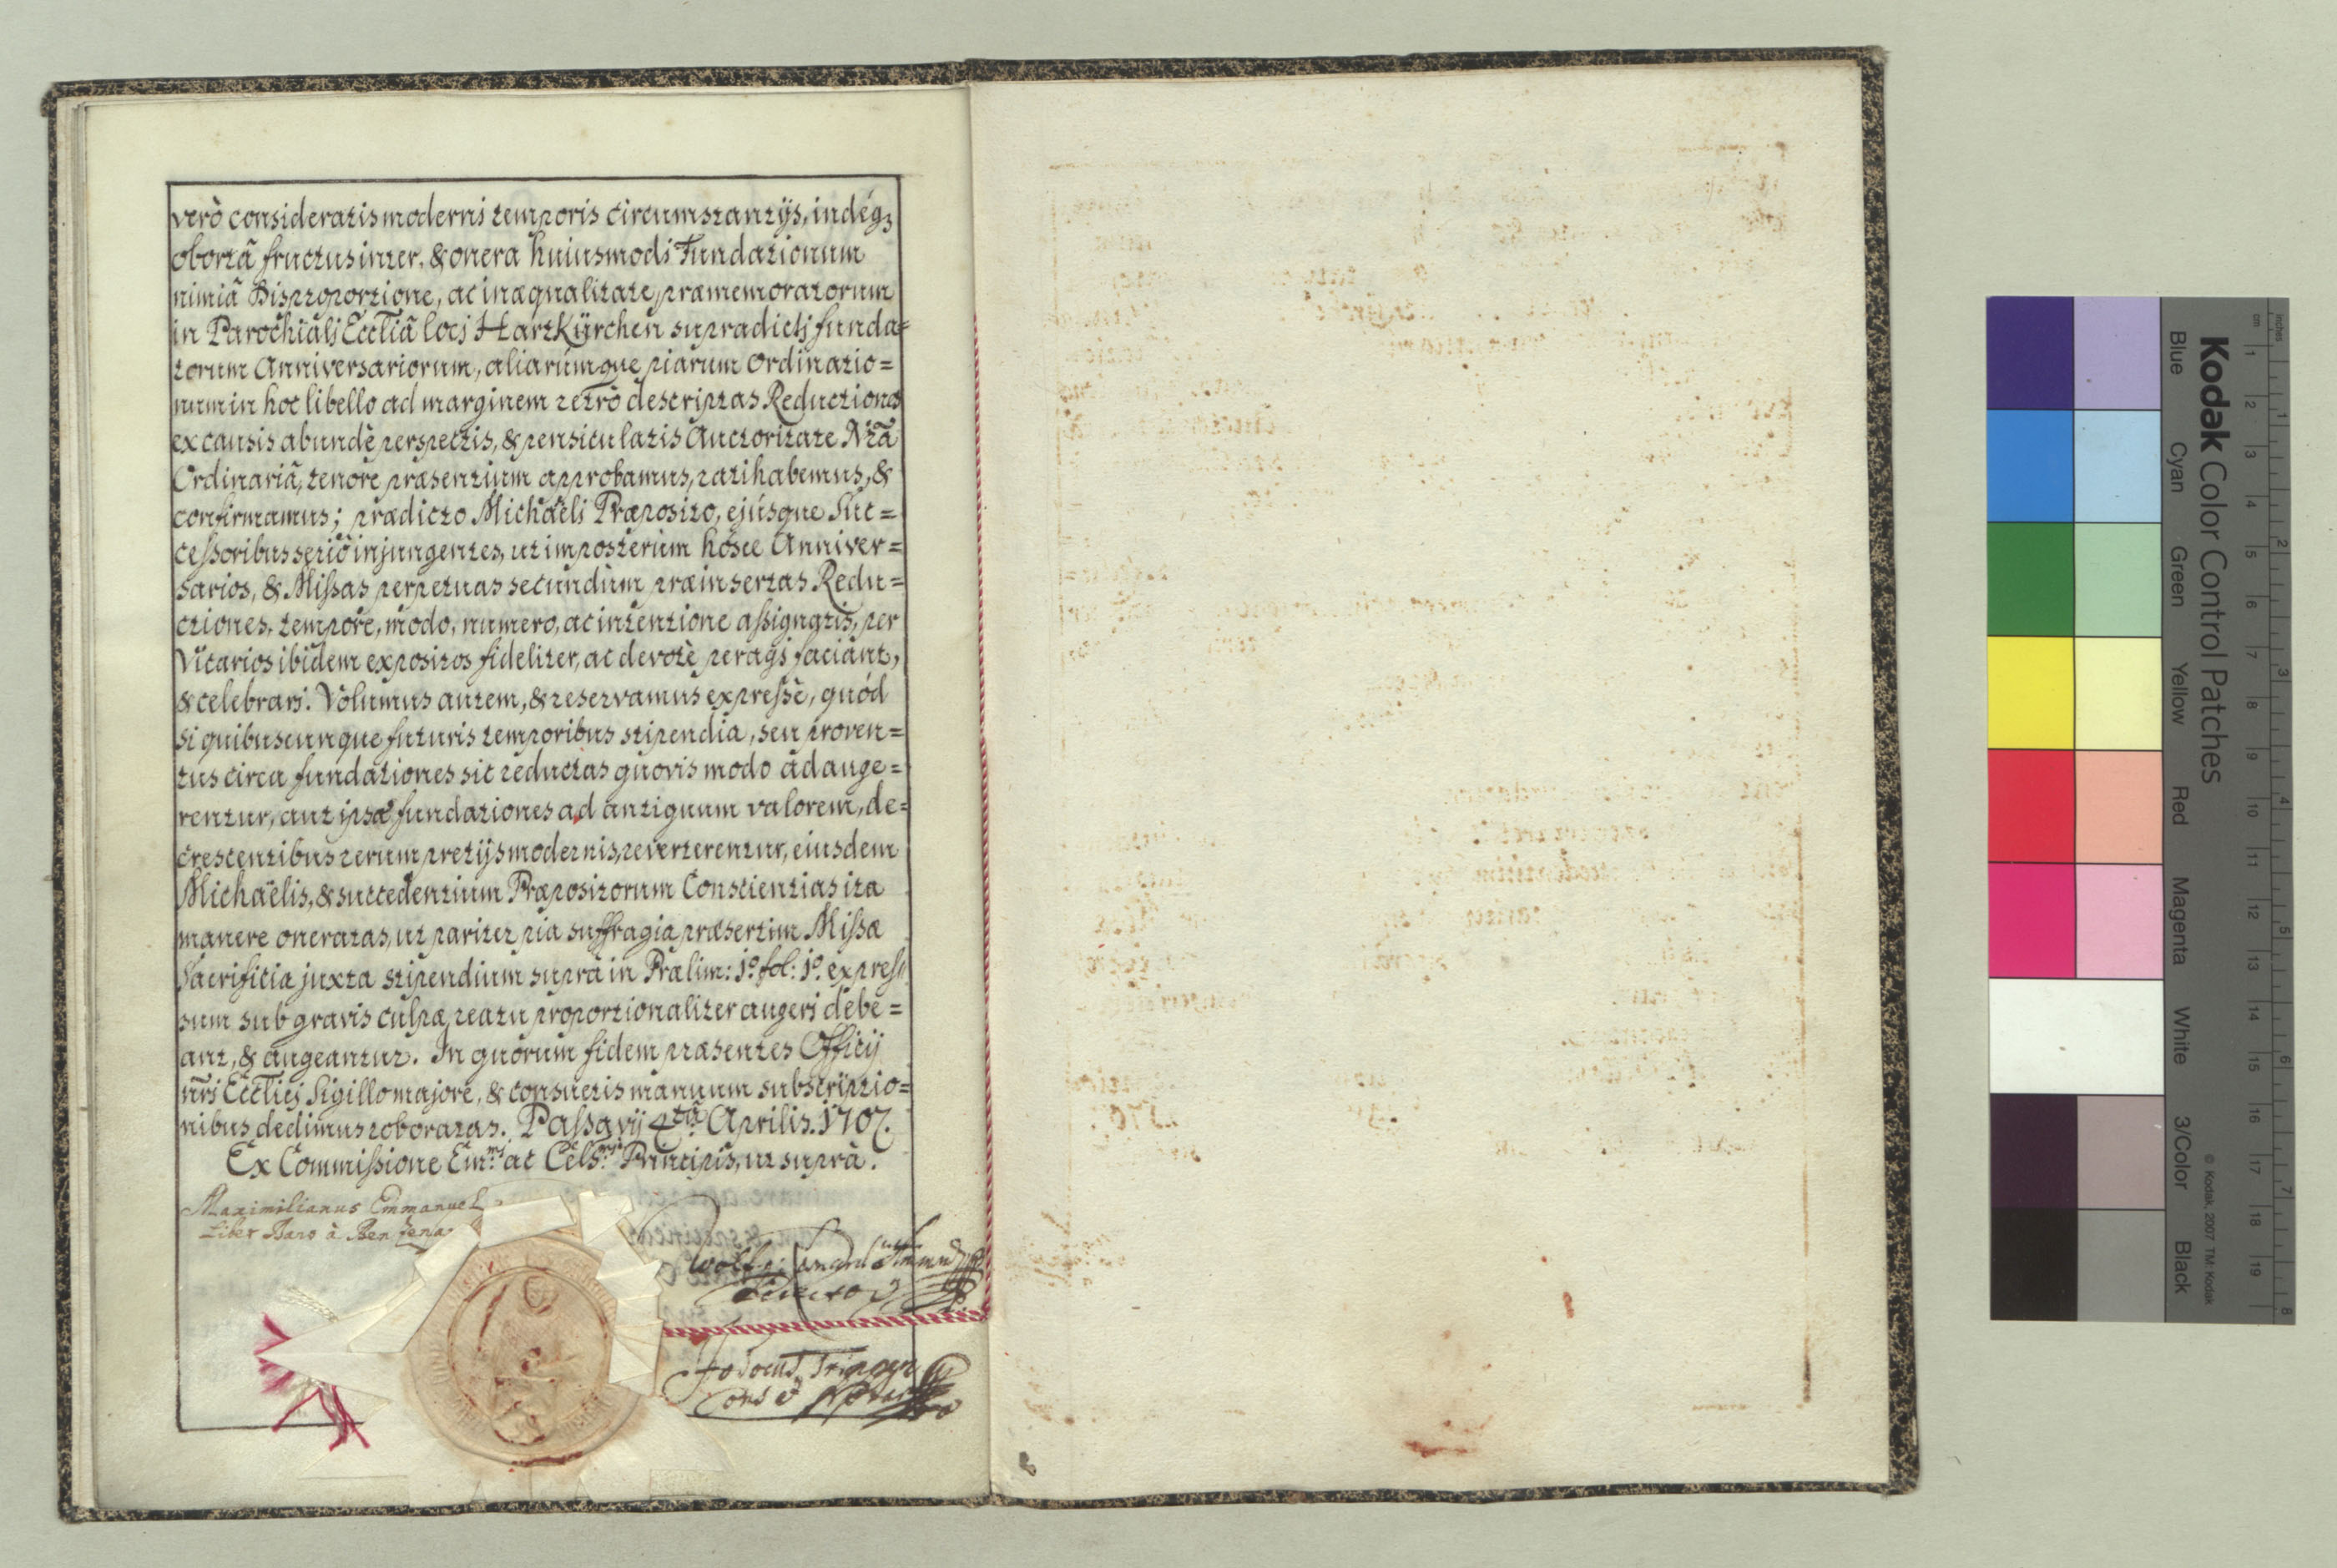 verò consideratis moderni temporis circumstantijs, indéq3
obortâ fructus inter, & onera huiusmodi Fundationum
nimiâ Disproportione, ac inæqualitate, præmemoratorum
in Parochialj Ecctiâ locj Hartkürchen supradictj funda=
torum Anniversariorum, aliarúmque piarum Ordinatio=
num in hoc libello ad marginem retrò descriptas Reductiones
ex causis abundè perspectis, & pensiculatis Auctoritate Nrâ
Ordinariâ, tenore præsentium approbamus, ratihabemus, &
confirmamus; prædicto Michaëli Præposito, ejúsque Suc=
cessoribus seriò injungentes, ut imposterùm hosce Anniver=
sarios, & Missas perpetuas secundùm præinsertas Redu=
ctiones, tempore, modo, numero, ac intentione assignatis, per
Vicarios ibidem expositos fideliter, ac devotè peragj faciant,
& celebrarj. Volumus autem, & reservamus expressè, quód
si quibuscunque futuris temporibus stipendia, seu proven=
tus circa fundationes sic reductas quovis modo adauge=
rentur, aut ipsæ fundationes ad antiquum valorem, de=
crescentibus rerum pretijs modernis, reverterentur, eiusdem
Michaëlis, & succedentium Præpositorum Conscientias ita
manere oneratas, ut pariter pia suffragia præsertim Missæ
Sacrificia juxta stipendium suprà in Prælim: 1º fol: 1º expres/
sum sub gravis culpæ reatu proportionaliter augeri debe=
ant, & augeantur. In quorum fidem præsentes Officij
nr̃j Ecctiej Sigillo majore, & consuetis manuum subscriptio=
nibus dedimus roboratas. Passavij 4tâ Aprilis. 1707.
Ex Commissione Emᵐⁱ ac Celsᵐⁱ Principis, ut suprà.
Maximilianus Emmanuel
Liber Baro à
Wolfg:
Director
Jodocus
Cons et
Kodak Color Control Patches
Blue Cyan Green Yellow Red Magenta White 3/Color Black
© Kodak, 2007 TM: Kodak
inches 1 2 3 4 5 6 7 8
cm 1 2 3 4 5 6 7 8 9 10 11 12 13 14 15 16 17 18 19